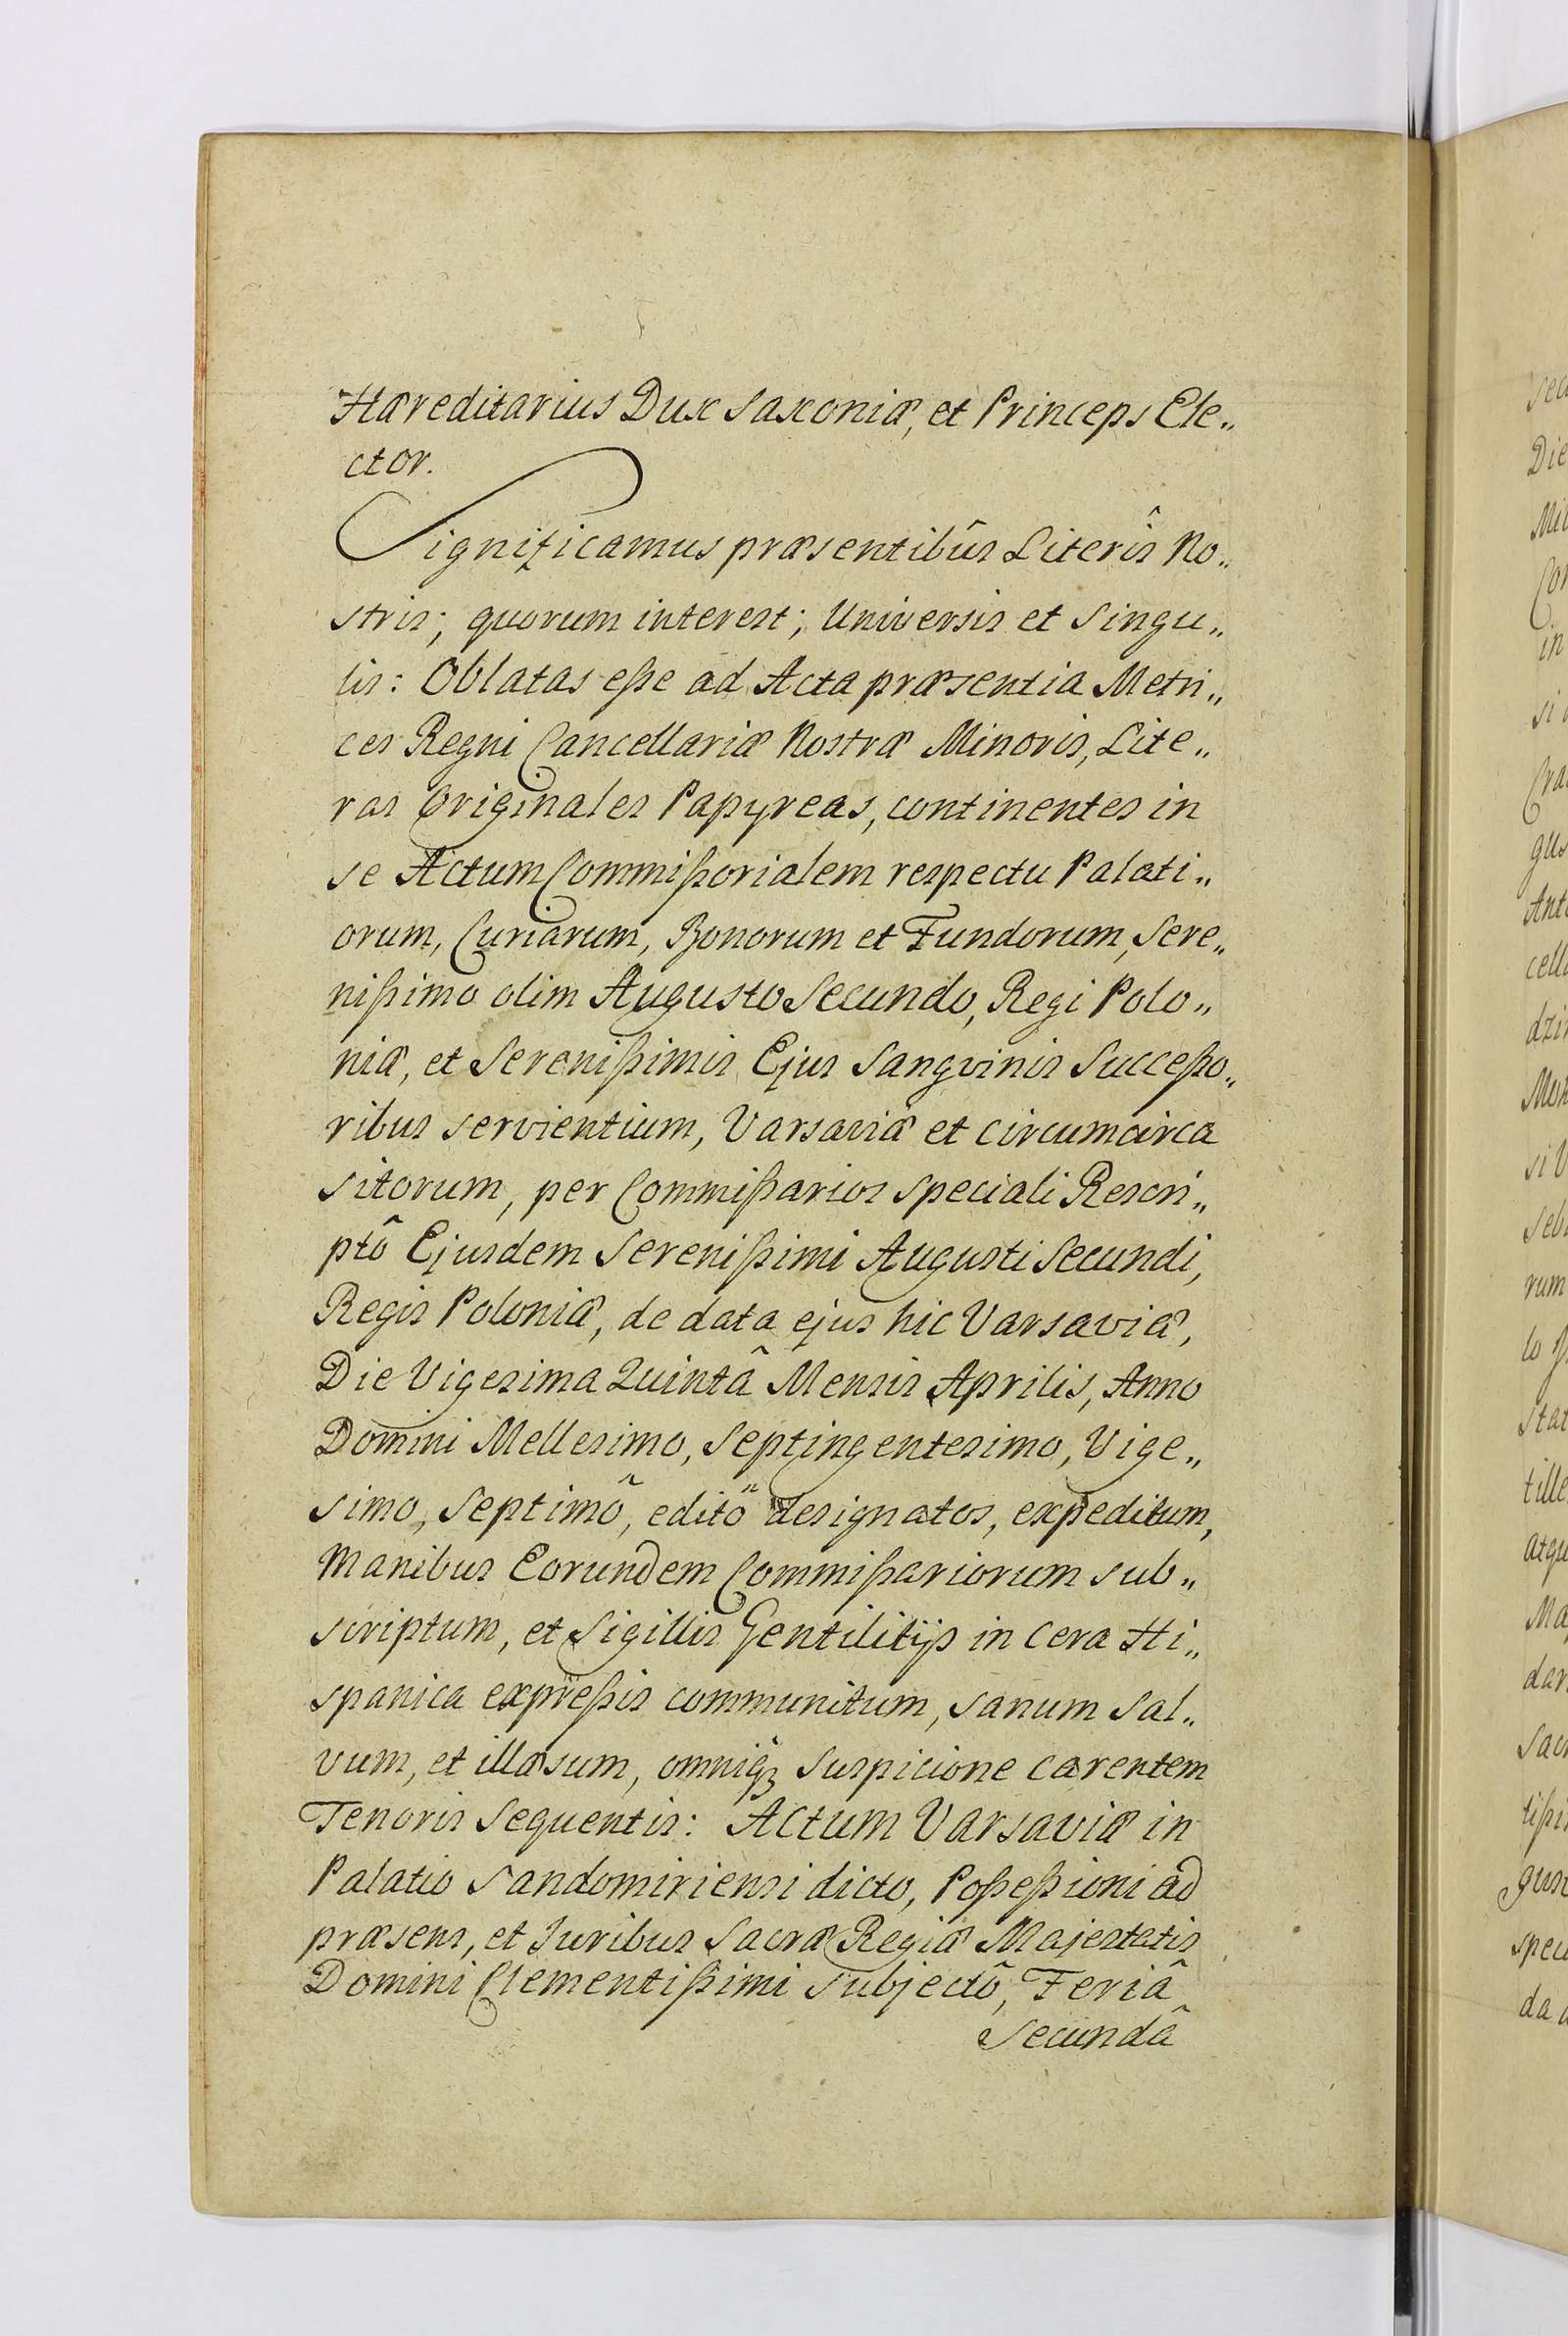 Hæreditarius Dux Saxoniæ, et Princeps Ele„
ctor.
Significamus præsentibûs Literîs No„
stris; quorum interest; Universis et Singu„
lis: Oblatas eße ad Acta præsentia Metri„
ces Regni Cancellariæ Nostræ Minoris, Lite„
ras Originales Papyreas, continentes in
se Actum Commißorialem respectu Palati„
orum, Curiarum, Bonorum et Fundorum, Sere„
nißimo olim Augusto Secundo, Regi Polo„
niæ, et Serenißimis Ejus Sangvinis Succeßo„
ribus servientium, Varsaviæ et circumcirca
sitorum, per Commißarios speciali Rescri„
ptô Ejusdem Serenißimi Augusti Secundi,
Regis Poloniæ, de data ejus hic Varsaviæ,
Die Vigesima Quintâ Mensis Aprilis, Anno
Domini Mellesimo, Septingentesimo, Vige„
simo, Septimô, editô designatos, expeditum,
Manibus Eorundem Commißariorum sub„
scriptum, et Sigillis Gentilitijs in Cera Hi„
spanica expreßis communitum, sanum Sal„
vum, et illæsum, omniq́ꝫ Suspicione carentem
Tenoris Sequentis: Actum Varsaviæ in
Palatio Sandomiriensi dicto, Poßeßioni ad
præsens, et Juribus Sacræ Regiæ Majestatis
Domini Clementißimi subjectô, Feriâ
Secundâ